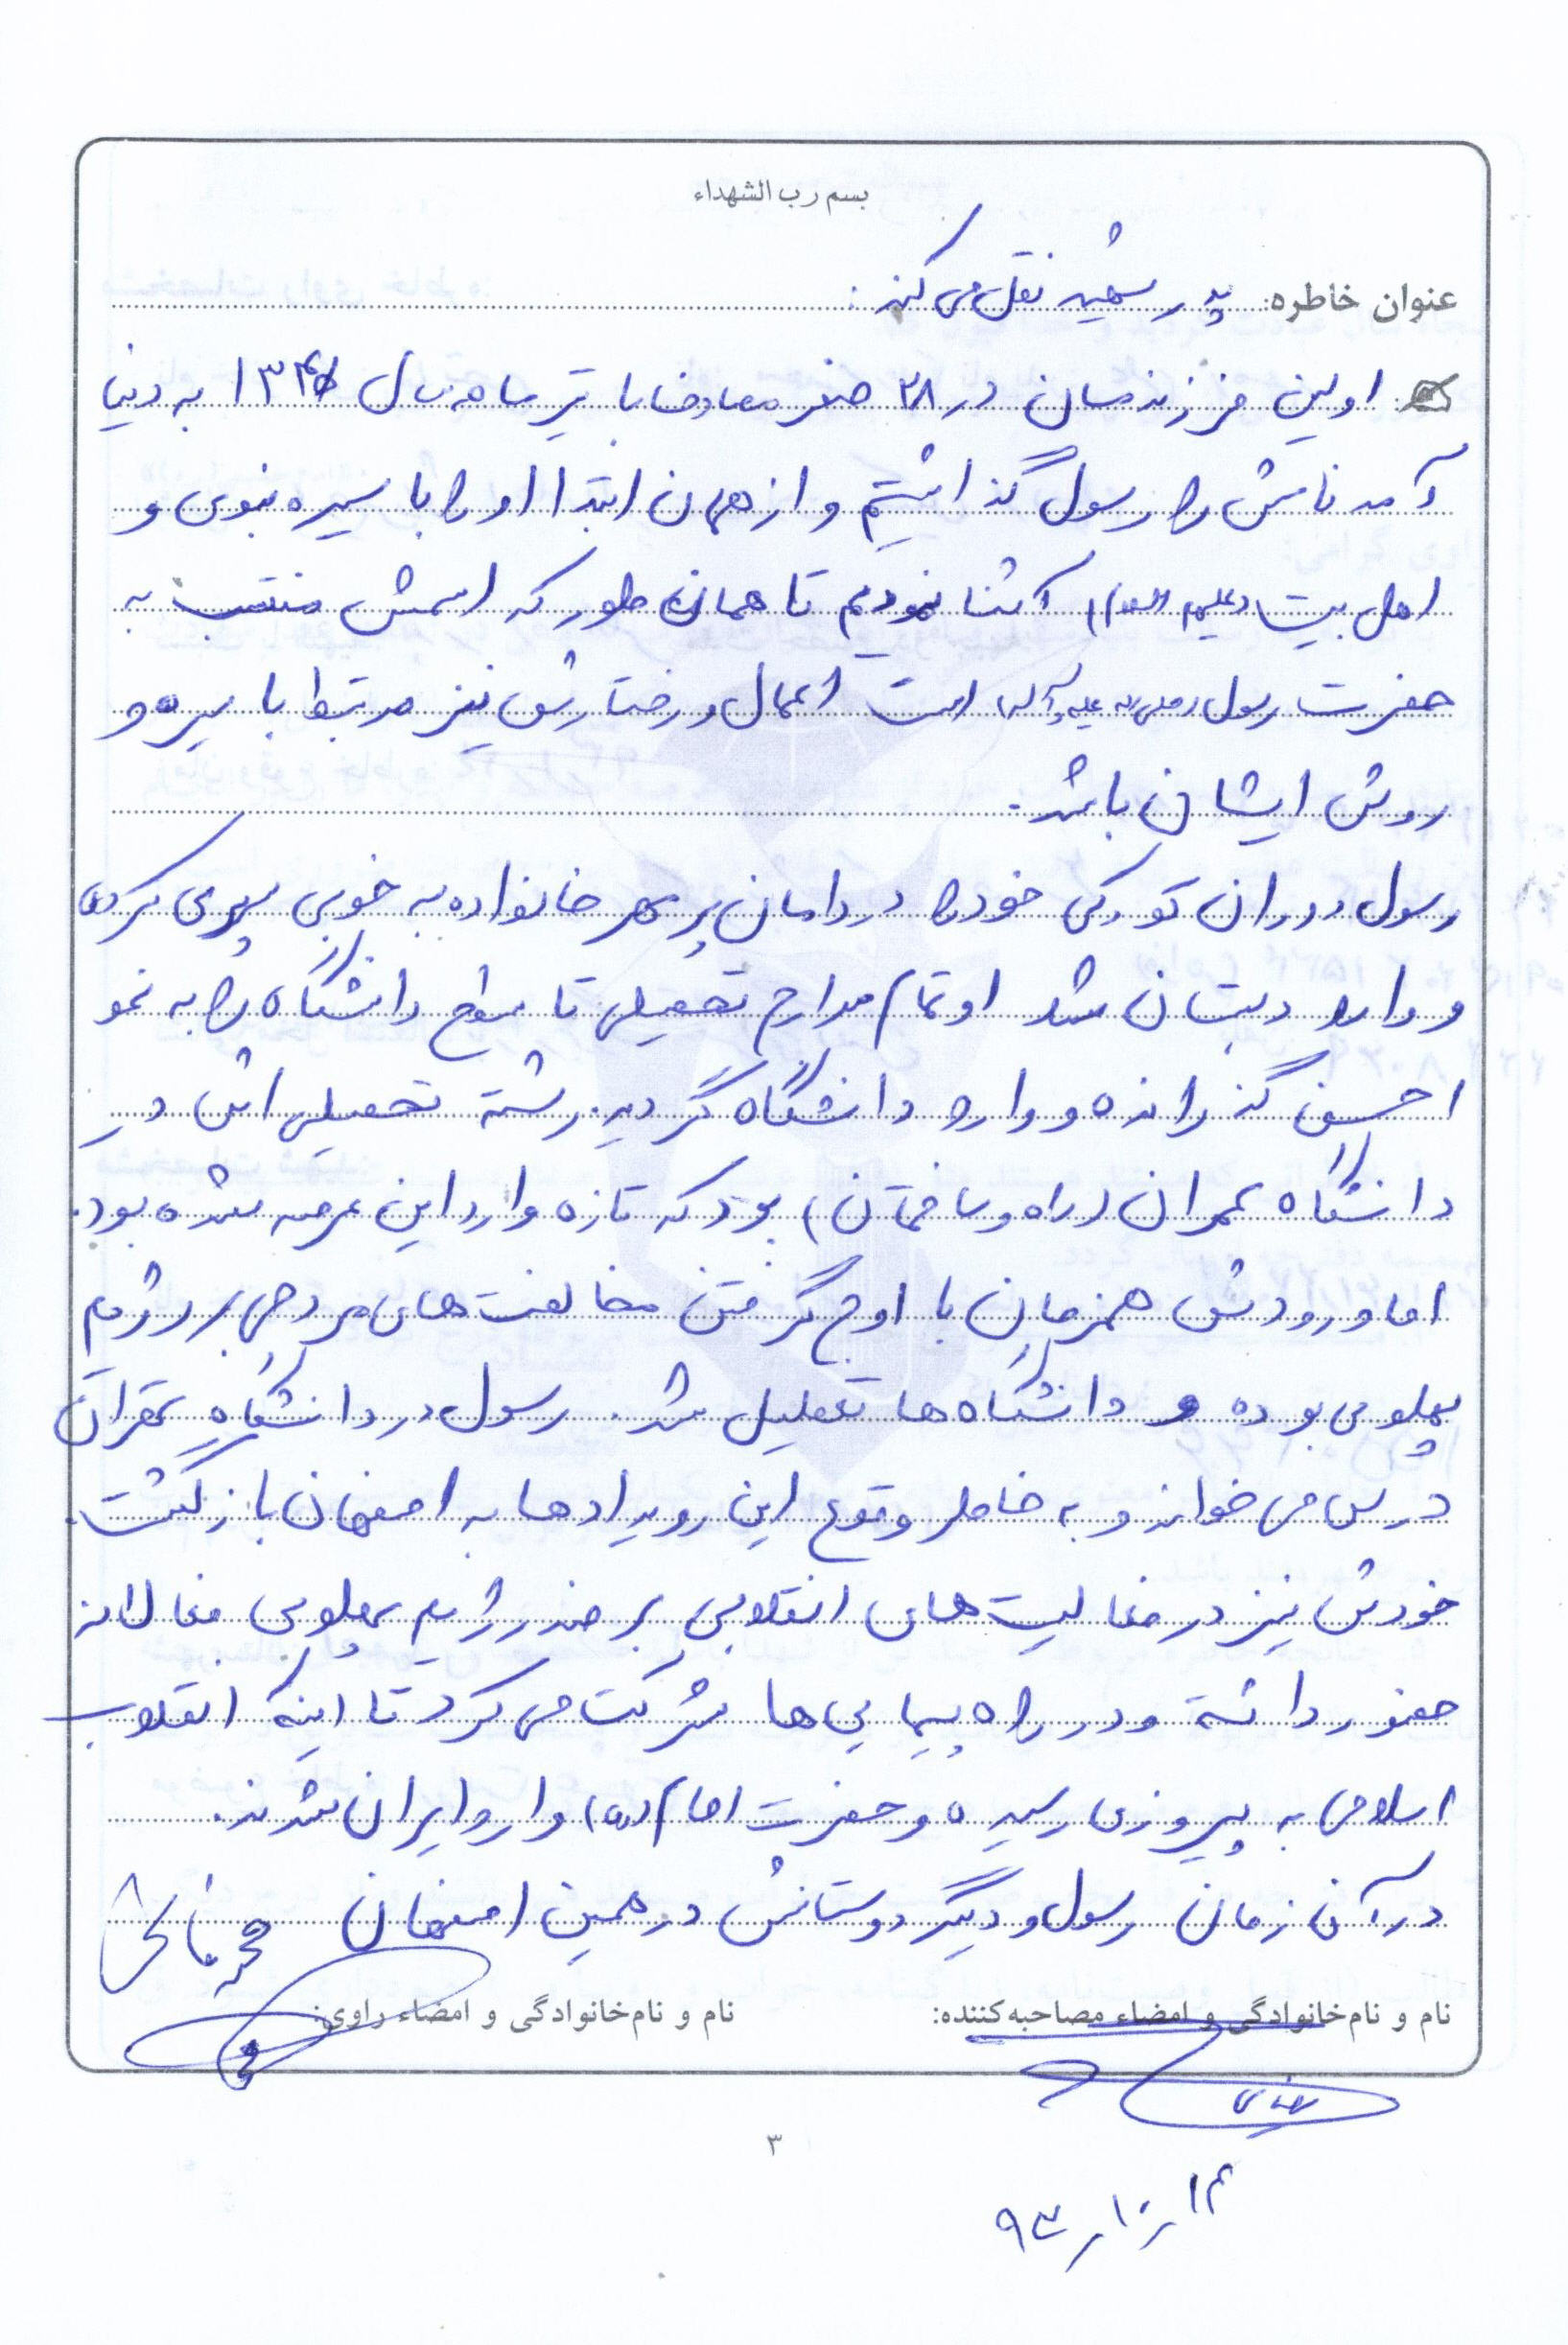 بسم رب الشهداء
عنوان خاطره: پدر شهید نقل می کند :
اولین فرزندمان در ۲۸ صفر مصادف با تیر ماه سال به دنیا
آمد نامش را رسول گذاشتیم و از همان ابتدا او را با سیره نبوی و
اهل بیت (علیهم السلام) آشنا نمودیم تا همان طور که اسمش منتسب به
حضرت رسول (صلی الله علیه و آله) است اعمال و رفتارش نیز مرتبط با سیره و
روش ایشان باشد.
رسول دوران کودکی خود را در دامان پر مهر خانواده به خوبی سپری کرده
و وارد دبستان شد او تمام مدارج تحصیلی تا سطح دانشگاه را به نحو
احسن گذرانده و وارد دانشگاه گردید. رشته تحصیلی اش در
دانشگاه عمران (راه و ساختمان) بود که تازه وارد این عرصه شده بود.
اما ورودش همزمان با اوج گرفتن مخالفت های مردمی بر رژیم
پهلوی بوده و دانشگاه ها تعطیل شد. رسول در دانشگاه تهران
درس می خواند و به خاطر وقوع این رویدادها به اصفهان بازگشت.
خودش نیز در فعالیت های انقلابی بر ضد رژیم پهلوی فعالانه
حضور داشته و در راه پیمایی ها شرکت می کرد تا اینکه انقلاب
اسلامی به پیروزی رسیده و حضرت امام (ره) وارد ایران شدند.
در آن زمان رسول و دیگر دوستانش در همین اصفهان
نام و نام‌خانوادگی و امضاء مصاحبه‌کننده: نام و نام‌خانوادگی و امضاء راوی:
۳
۱۴/۱۰/۹۳